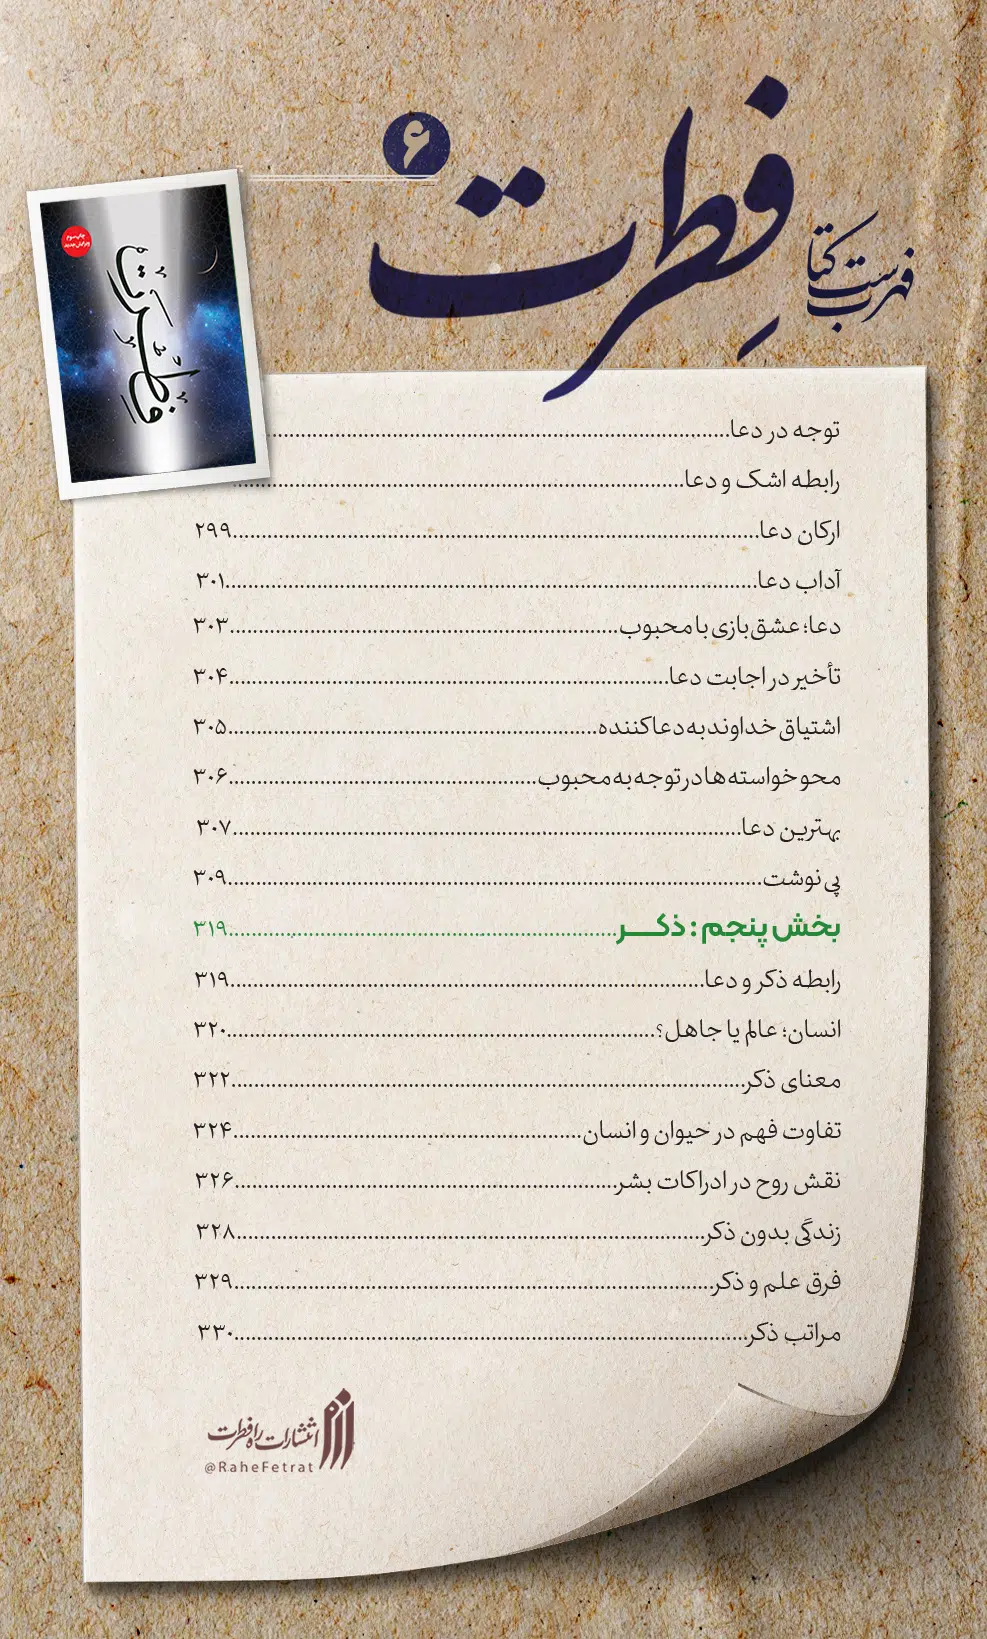 فهرست کتاب
فطرت
۶
چاپ سوم
ویرایش جدید
فطرت
توجه در دعا................
رابطه اشک و دعا................
ارکان دعا................۲۹۹
آداب دعا................۳۰۱
دعا؛ عشق‌بازی با محبوب................۳۰۳
تأخیر در اجابت دعا................۳۰۴
اشتیاق خداوند به دعاکننده................۳۰۵
محو خواسته‌ها در توجه به محبوب................۳۰۶
بهترین دعا................۳۰۷
پی نوشت................۳۰۹
بخش پنجم : ذکـــر................۳۱۹
رابطه ذکر و دعا................۳۱۹
انسان؛ عالم یا جاهل؟................۳۲۰
معنای ذکر................۳۲۲
تفاوت فهم در حیوان و انسان................۳۲۴
نقش روح در ادراکات بشر................۳۲۶
زندگی بدون ذکر................۳۲۸
فرق علم و ذکر................۳۲۹
مراتب ذکر................۳۳۰
انتشارات راه فطرت
@RaheFetrat